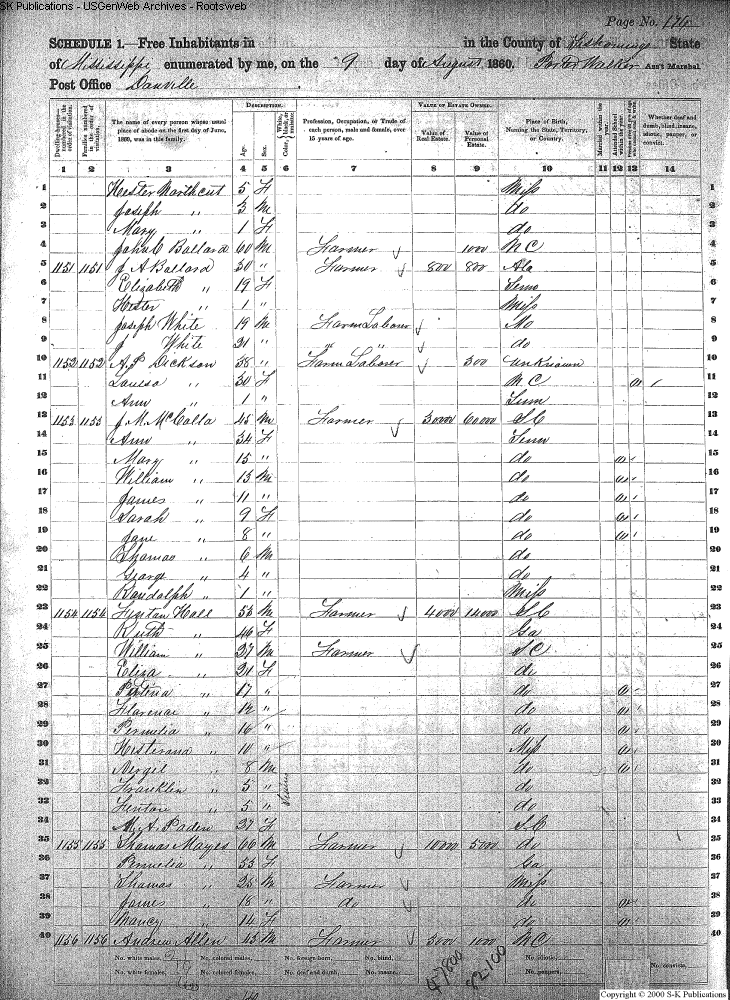 SK Publications - USGenWeb Archives - Rootsweb
Page No. 176
SCHEDULE 1.—Free Inhabitants in in the County of Tishomingo State
of Mississippi enumerated by me, on the 9 day of August 1860. Porter Walker Ass't Marshal
Post Office Danville
Dwelling-houses—numbered in the order of visitation.
Families numbered in the order of visitation.
The name of every person whose usual place of abode on the first day of June, 1860, was in this family.
DESCRIPTION.
Age.
Sex.
Color,
Profession, Occupation, or Trade of each person, male and female, over 15 years of age.
VALUE OF ESTATE OWNED.
Value of Real Estate.
Value of Personal Estate.
Place of Birth, Naming the State, Territory, or Country.
Married within the year.
Attended School within the year.
Whether deaf and dumb, blind, insane, idiotic, pauper, or convict.
1 2 3 4 5 6 7 8 9 10 11 12 13 14
1 Hester 5 F Miss 1
2 Joseph " 3 M do 2
3 Mary " 1 F do 3
4 John C Ballard 60 M Farmer 1000 N C 4
5 1151 1151 J A Ballard 30 " Farmer 800 800 Ala 5
6 Elizabeth " 19 F Tenn 6
7 Hester " 1 " Miss 7
8 Joseph White 19 M Farm Laborer 8
9 J White 21 " " " do 9
10 1152 1152 A P Dickson 38 " Farm Laborer 300 unknown 10
11 Louisa " 30 F N C 11
12 Ann " 1 " Tenn 12
13 1153 1153 J M McCalla 45 M Farmer 30000 60000 S C 13
14 Ann " 34 F Tenn 14
15 Mary " 15 " do 15
16 William " 13 M do 16
17 James " 11 " do 17
18 Sarah " 9 F do 18
19 Jane " 8 " do 19
20 Thomas " 6 M do 20
21 George " 4 " do 21
22 Randolph " 1 " Miss 22
23 1154 1154 Hall M Farmer 4000 14000 S C 23
24 Ruth " 46 F Ga 24
25 William " 27 M Farmer S C 25
26 Eliza " 21 F do 26
27 " 17 " do 27
28 Florence " " do 28
29 Permelia " 16 " do 29
30 " 10 " Miss 30
31 Virgil " 8 M do 31
32 Franklin " 5 " do 32
33 Fenton " 5 " do
34 M. A. Paden 27 F S C
35 1155 1155 Thomas Mayes 66 M Farmer 10000 5000 do 35
36 Permelia " 53 F Ga 36
37 Thomas " 25 M Farmer Miss 37
38 James " 18 " do do 38
39 Nancy " 14 F do 39
40 1156 1156 Andrew Allen M Farmer 3000 1000 N C 40
No. white males, No. colored males, No. foreign-born, No. blind, No. idiotic,
No. white females, No. colored females, No. deaf and dumb, No. insane, No. paupers, No. convicts,
47800 82100
Copyright © 2000 S-K Publications